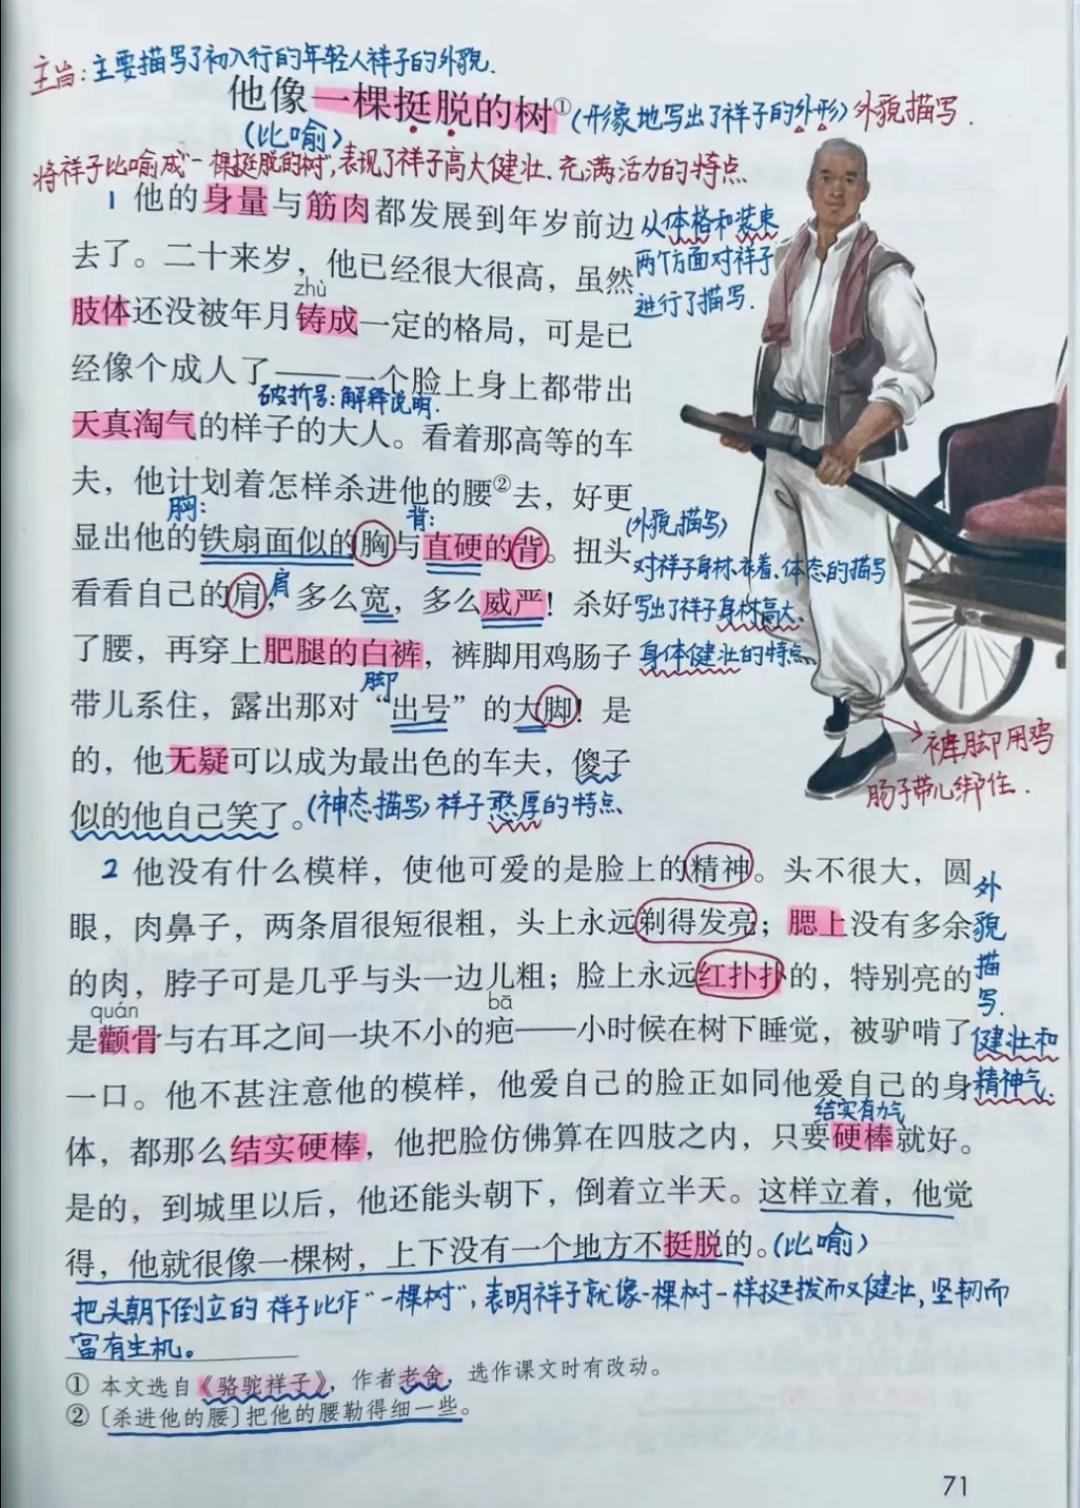 主旨:主要描写了初入行的年轻人祥子的外貌.
他像一棵挺脱的树①(形象地写出了祥子的外形)外貌描写.
(比喻)
将祥子比喻成"一棵挺脱的树",表现了祥子高大健壮、充满活力的特点
1 他的身量与筋肉都发展到年岁前边
从体格和装束
去了。二十来岁,他已经很大很高,虽然
两个方面对祥子
zhù
进行了描写.
肢体还没被年月铸成一定的格局,可是已
经像个成人了——一个脸上身上都带出
破折号:解释说明.
天真淘气的样子的大人。看着那高等的车
夫,他计划着怎样杀进他的腰②去,好更
胸:
背:
显出他的铁扇面似的胸与直硬的背。扭头
(外貌描写)
对祥子身材、衣着、体态的描写
看看自己的肩,多么宽,多么威严!杀好
肩
写出了祥子身材高大、
了腰,再穿上肥腿的白裤,裤脚用鸡肠子
身体健壮的特点
脚
带儿系住,露出那对“出号”的大脚!是
的,他无疑可以成为最出色的车夫,傻子
裤脚用鸡
肠子带儿绑住.
似的他自己笑了。(神态描写)祥子憨厚的特点
2 他没有什么模样,使他可爱的是脸上的精神。头不很大,圆
眼,肉鼻子,两条眉很短很粗,头上永远剃得发亮;腮上没有多余
的肉,脖子可是几乎与头一边儿粗;脸上永远红扑扑的,特别亮的
外貌描写.
quán
bā
是颧骨与右耳之间一块不小的疤——小时候在树下睡觉,被驴啃了
健壮和
一口。他不甚注意他的模样,他爱自己的脸正如同他爱自己的身
精神气.
结实有力气
体,都那么结实硬棒,他把脸仿佛算在四肢之内,只要硬棒就好。
是的,到城里以后,他还能头朝下,倒着立半天。这样立着,他觉
得,他就很像一棵树,上下没有一个地方不挺脱的。(比喻)
把头朝下倒立的祥子比作"一棵树",表明祥子就像一棵树一样挺拔而又健壮,坚韧而
富有生机。
① 本文选自《骆驼祥子》,作者老舍,选作课文时有改动。
② 〔杀进他的腰〕把他的腰勒得细一些。
71